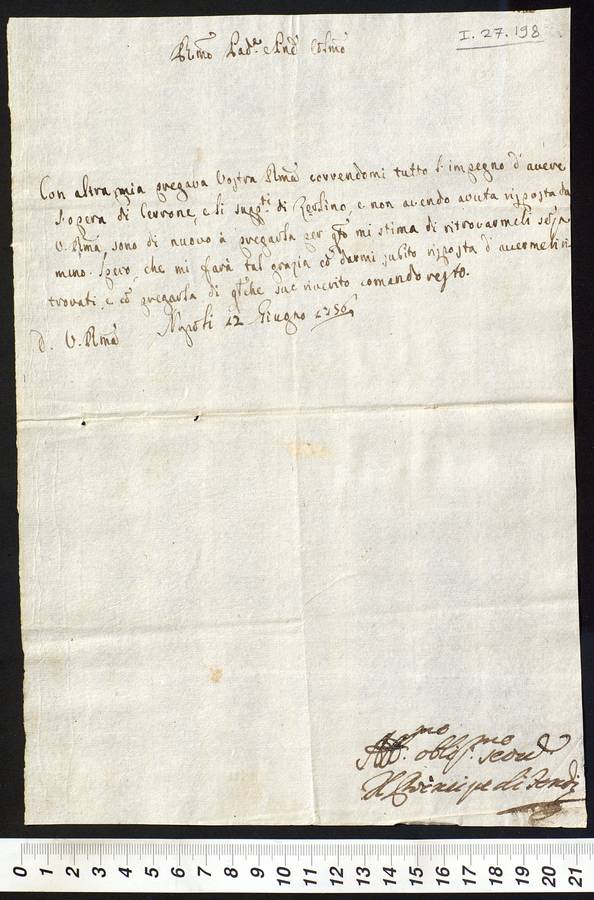 I. 27. 198
Rmo Pad.e e Pne Colmo
Con altra mia pregava Vostra Rma correndomi tutto l'impegno d'avere
l'opera di Cerrone, e li suppti di Zerlino, e non avendo avuta risposta da
V. Rma, sono di nuovo à pregarla per qto mi stima di ritrovarmeli
meno. Spero, che mi farà tal grazia cō darmi subito risposta d'avermeli ri-
trovati, e cō pregarla di qlche suo riverito comando resto.
D. V. Rma Napoli 12 Giugno 1756
oblig.mo
Il Principe di
0 1 2 3 4 5 6 7 8 9 10 11 12 13 14 15 16 17 18 19 20 21